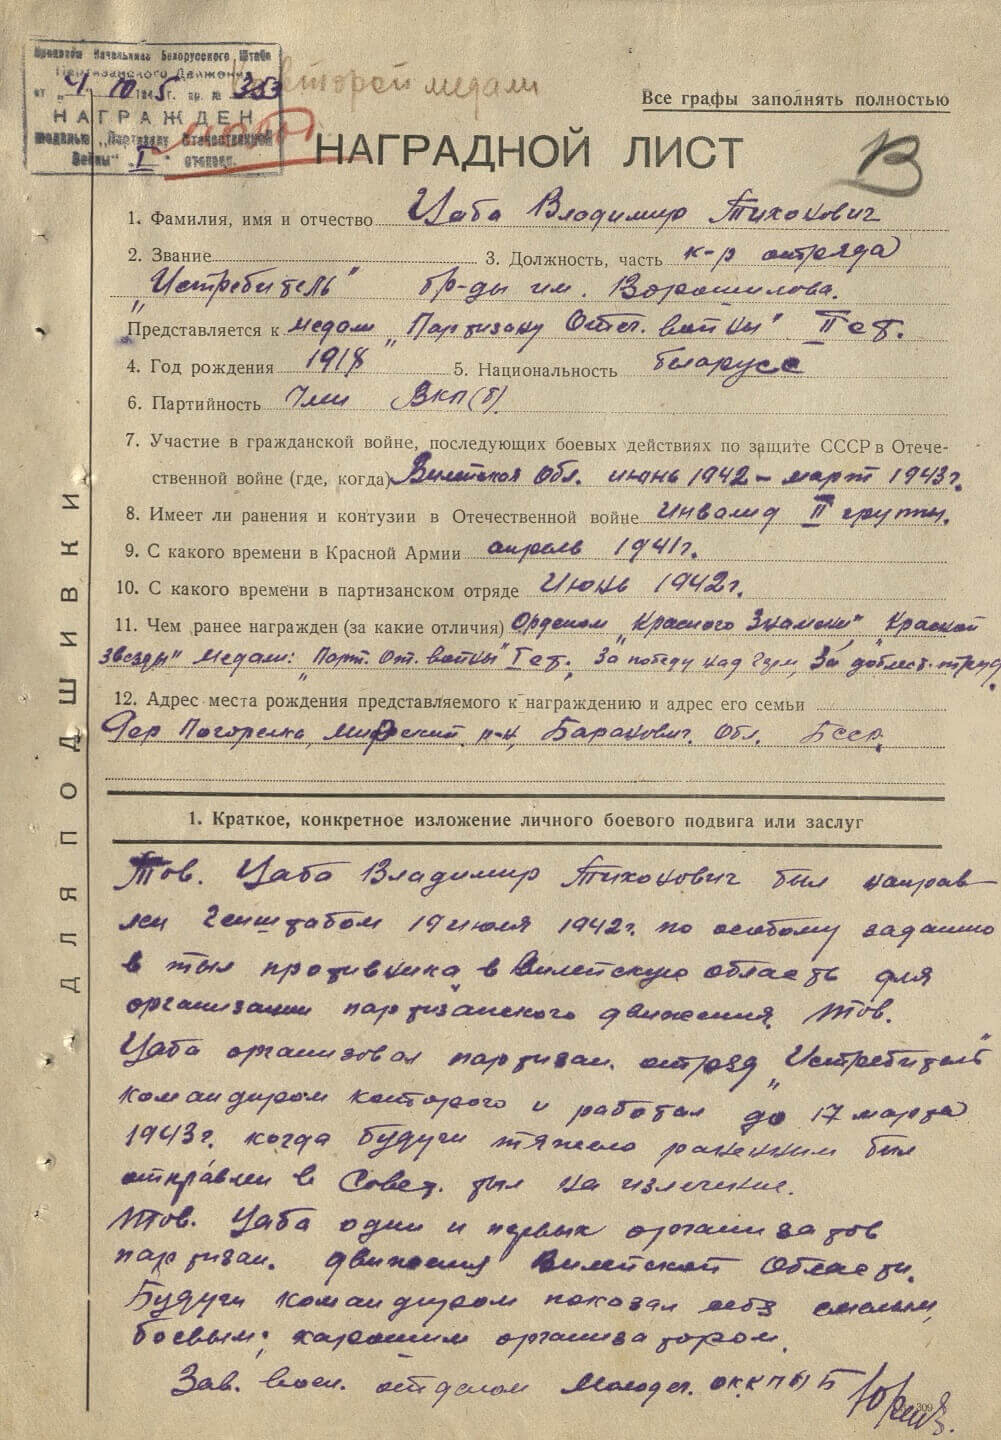 Приказом Начальника Белорусского Штаба
Партизанского Движения
от „4" 10 1945 г. пр. № 353
НАГРАЖДЕН
медалью „Партизану Отечественной
Войны" I степени.
второй медали
Все графы заполнять полностью
НАГРАДНОЙ ЛИСТ
1. Фамилия, имя и отчество Цаба Владимир Тихонович
2. Звание 3. Должность, часть к-р отряда
„Истребитель" бр-ды им. Ворошилова.
Представляется к медали „Партизану Отеч. войны" II ст.
4. Год рождения 1918 5. Национальность беларусс
6. Партийность Член ВКП(б)
7. Участие в гражданской войне, последующих боевых действиях по защите СССР в Отече-
ственной войне (где, когда) Вилейская Обл. июнь 1942 – март 1943 г.
8. Имеет ли ранения и контузии в Отечественной войне Инвалид II группы.
9. С какого времени в Красной Армии апрель 1941 г.
10. С какого времени в партизанском отряде Июнь 1942 г.
11. Чем ранее награжден (за какие отличия) Орденом „Красного Знамени" Красной
звезды" Медали: „Парт. От. войны" I ст. За победу над Герм, За доблест. труд
12. Адрес места рождения представляемого к награждению и адрес его семьи
Дер Погорелка, Мирский р-н, Баранович. Обл. Бсср.
ДЛЯ ПОДШИВКИ
1. Краткое, конкретное изложение личного боевого подвига или заслуг
Тов. Цаба Владимир Тихонович был направ-
лен Генштабом 19 июля 1942 г. по особому заданию
в тыл противника в Вилейскую область для
организации партизанского движения. Тов.
Цаба организовал партизан. отряд „Истребитель"
командиром которого и работал до 17 марта
1943 г. когда будучи тяжело раненным был
отправлен в Совет. тыл на излечение.
Тов. Цаба один и первых организатов
партизан. движения Вилейской Области.
Будучи командиром показал себя смелым,
боевым, харошим организатором.
Зав. воен. отделом Молодеч. ОК КП(б)Б
309